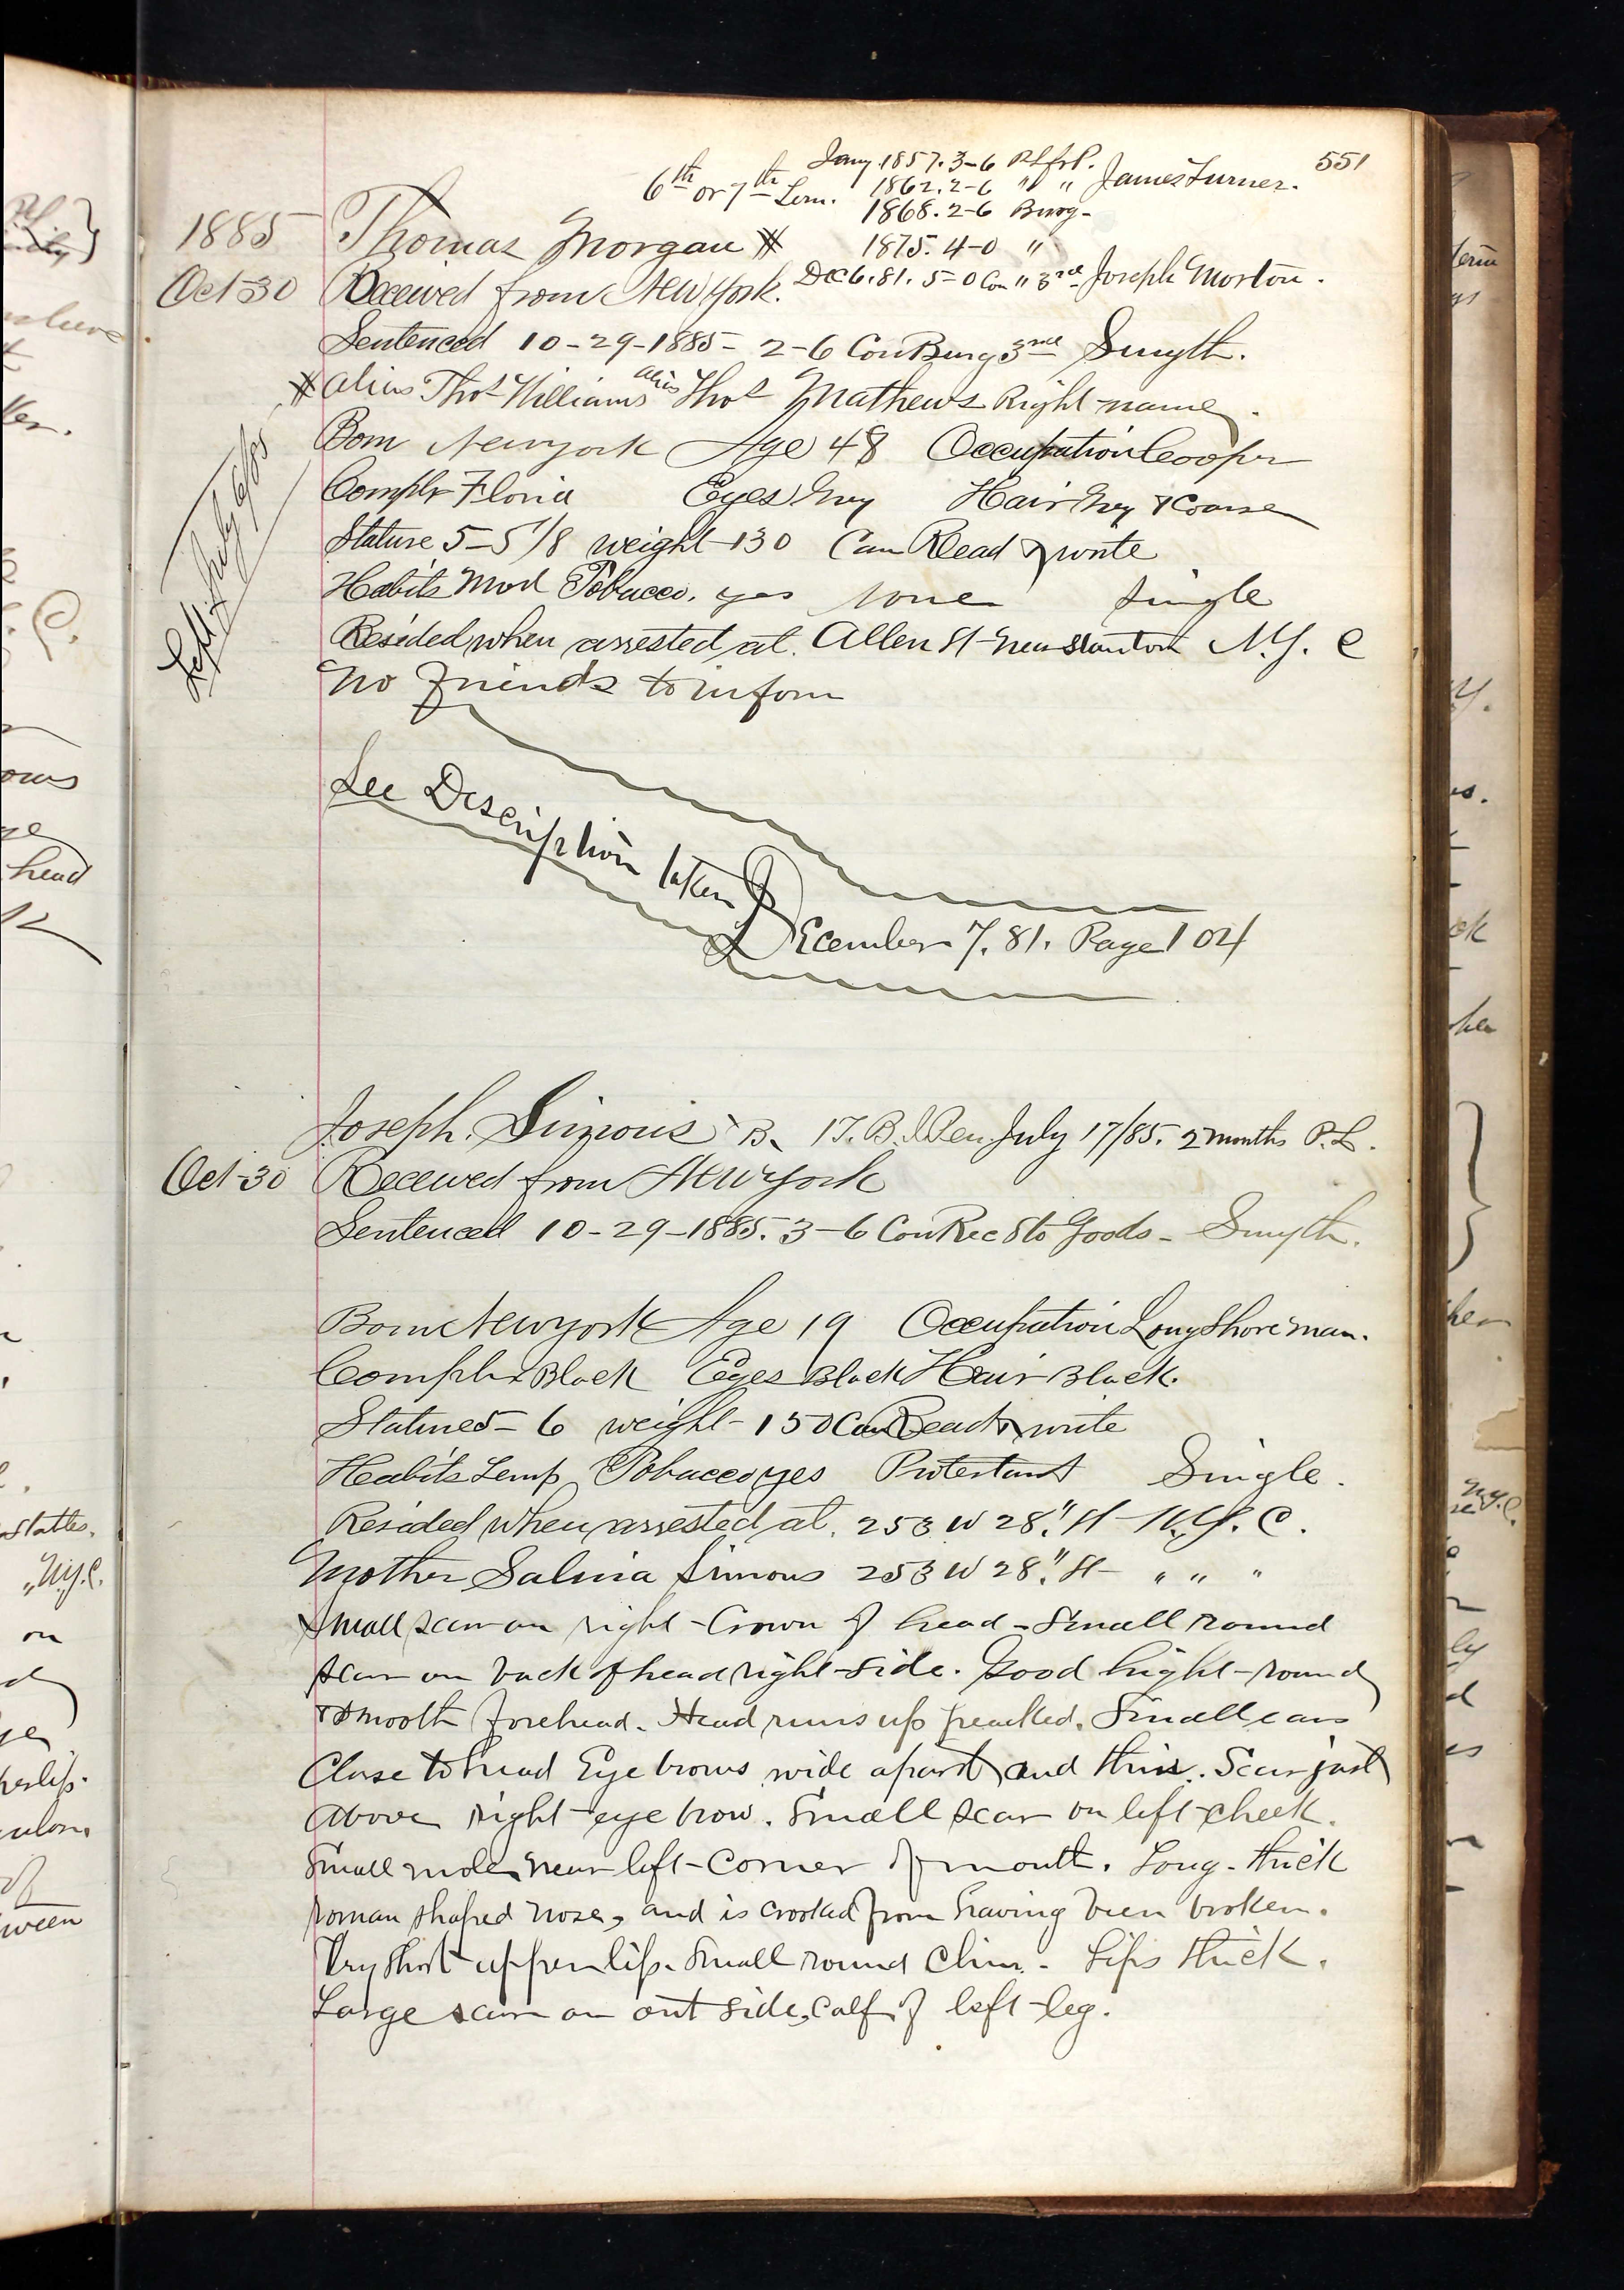 551
Jany. 1857. 3-6
6th or 7th Term. 1862. 2-6 " " James Turner.
1868. 2-6 Burg-
1885 Thomas Morgan # 1875. 4-0 "
Oct-30 Received from New York. Dec 6. 81. 5-0 Con " 3rd Joseph Morton.
Sentenced 10-29-1885- 2-6 Con Burg 3rd Smyth.
# alias Thos Williams alias Thos Mathews Right name.
Born New york Age 48 Occupation Cooper
Complx Florid Eyes Grey Hair Grey & Coarse
Stature 5-5 1/8 weight-130 Can Read & write
Habits Mod Tobacco. yes None Single
Resided when arrested at. Allen St-near Stanton N.Y. C
No Friends to inform
See Description taken
December 7. 81. Page 104
Joseph. Simons B. July 17/85. 2 months P. L.
Oct-30 Received from New york
Sentenced 10-29-1885. 3-6 Con Rec Sto Goods- Smyth.
Born New york Age 19 Occupation Longshoreman.
Complx Black Eyes Black Hair Black.
Stature 5-6 weight-150 Can Read & write
Habits Temp Tobacco yes Protestant Single.
Resided when arrested at. 253 W 28." St-N.Y. C.
Mother Salina Simons 253 W 28." St- " " "
Small scar on right-Crown of head-Small round
scar on back of head right-side. Good hight-round
& smooth forehead. Head runs up peacked. Small ears
Close to head Eye brows wide apart and thin. Scar just
above right-eye brow. Small scar on left-cheek.
Small mole near left-Corner of mouth. Long-thick
roman shaped nose, and is crooked from having been broken.
Very short-upper lip. Small round Chin. - Lips thick.
Large scar on out side, calf of left-leg.